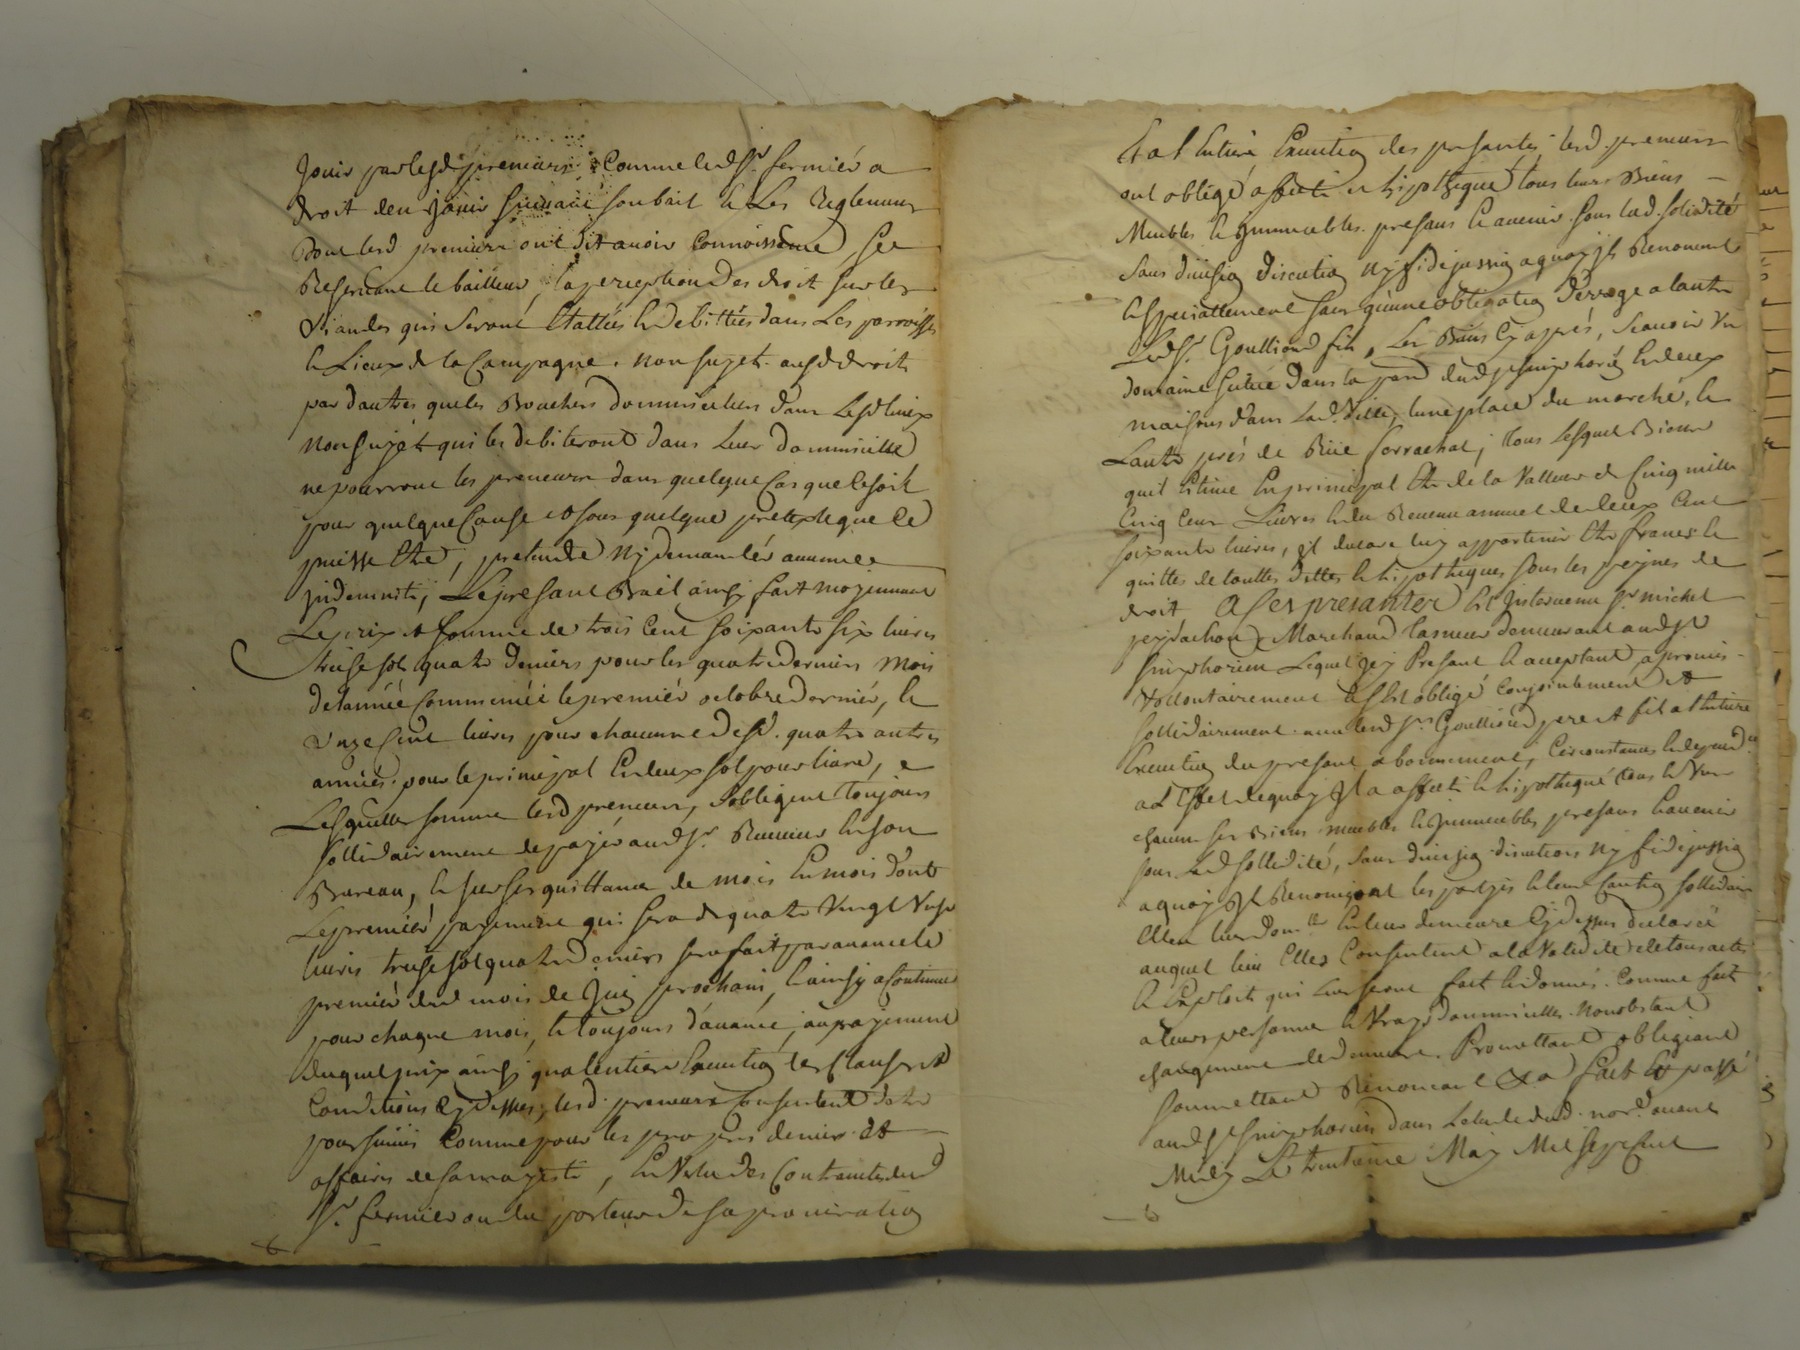 Jouir par lesd preneurs, Comme led Sr. fermiér a
droit den jouir suivant son bail & Les Reglemens
dont lesd preneurs ont dit avoir Connoissance, se
Reservant le bailleur, la perception des droit sur les
Viandes qui Seront Etallées & debittées dans Les parroisses
& Lieux de la Campagne. non sujets ausd droits
par dautres que les Bouchers dommicilies dans Lesd lieux
non sujét qui les debiteront dans leur dommicille
ne pourront les preneurs dans quelque Cas que Ce soit
pour quelque Cause et sous quelque pretexte que Ce
puisse Etre, pretendre Ny demandér aucune
jndemnité, Le present Bail ainsy fait moyennant
Le prix et somme de trois Cent soixante six livres
treise sols quatre deniers pour les quatre derniers mois
de lannéé Commencéé le premiér octobre dernier, &
onze Cent livres pour chacunne desd. quatre autres
annéés. pour le principal & deux sol pour livre,
Lesquelles somme lesd preneurs, sobligent Toujours
sollidairement de payér aud Sr. Receveur En son
Bureau, & sur ses quittance de mois En mois dont
Le premiér payement qui sera de quatre Vingt Onze
livres treise sol quatre deniers sera fait par avance le
premiér dud mois de Juin prochain, & ainsy a Continuer
pour chaque mois, & toujours d'avance, au payement
duquel prix ainsy qua lentiere Execution des Clauses et
Conditions Cy dessus, lesd. preneurs Consentent detre
poursuivis Comme pour les propres denier et
affaires de sa majesté, En Vertu des Contraintes dud
Sr. fermier ou du porteur de sa procuration
Et a l Entiere Execution des presantes, lesd. preneurs
ont obligé affecté et hipothequé tous leurs Biens
Meubles & jmmeubles. presans & avenir. sous lad. solidité
sans division Discution Ny fidejussion a quoy jls Renoncent
& speciallement sans quunne obligation deroge a lautre
Led Sr. Goullioud fils, Les Biens Cy aprés, scavoir Un
domaine situé dans la par dud St simphorien & deux
maisons dans lad. Ville, lune place du marché, &
Lautre prés de Riie ; tous lesquel Biens
quil Estime En principal Etre de la Valleur de Cinq mille
Cinq Cent Livres & du Revenu annuel de deux Cent
soixante livres, jl declare luy appartenir Etre francs &
quittes de touttes dettes & hipotheques sous les peynes de
droit A Ces presantes Est Intervenu Sr. michel
Marchand demeurant aud St
simphorien Lequel jcy Presant & acceptant, a promis
Vollontairement & sEst obligé Conjointement et
sollidairement avec lesd Srs. Goullioud pere et fils a l Entiere
Execution du presant abonnement, Circonstances & depend.ces
a l Effet dequoy jl a affecté & hipothequé tous & Un
chacun ses Biens meubles & jmmeubles presans & avenir
sous lad sollidité, sans division discution Ny fidejussion
a quoy jls Renoncent les partyes & leur Caution sollidaire
Elleu leur dom.lle En leur demeure Cy dessus declaréé
auquel lieu Elles Consentent a la Validité de tous actes
& Exploits qui leur seront fait & donnés. Comme fait
a leurs personne & Vrays dommicilles. nonobstant
changement de demeure. Promettant obligeant
soumettant Renoncant &a fait Et passé
aud St simphorien dans Letude dud. nore. avant
Midy Le trentieme May Mil sept Cent